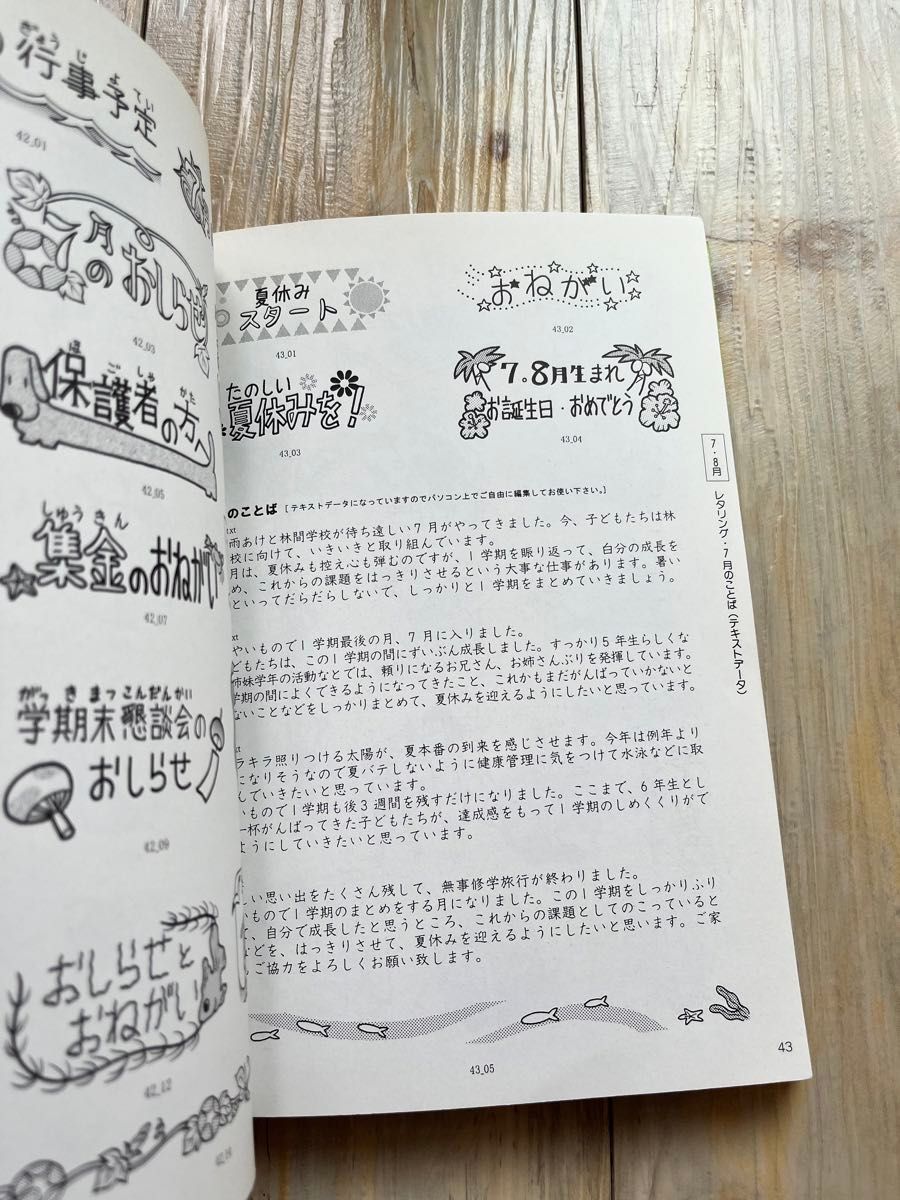 ぎょう じ よ てい
行事予定
42_01
月
のおしらせ
42_03
ほ ご しゃ かた
保護者の方へ
42_05
しゅうきん
集金のおねがい
42_07
がっ き まつ こんだんかい
学期末懇談会の
おしらせ
42_09
おしらせと
おねがい
42_12
夏休み
スタート
43_01
おねがい
43_02
たのしい
夏休みを!
43_03
7.8月生まれ
お誕生日・おめでとう
43_04
のことば [テキストデータになっていますのでパソコン上でご自由に編集してお使い下さい。]
xt
雨あけと林間学校が待ち遠しい7月がやってきました。今、子どもたちは林
校に向けて、いきいきと取り組んでいます。
月は、夏休みも控え心も弾むのですが、1学期を賑り返って、白分の成長を
め、これからの課題をはっきりさせるという大事な仕事があります。暑い
といってだらだらしないで、しっかりと1学期をまとめていきましょう。
xt
やいもので1学期最後の月、7月に入りました。
どもたちは、この1学期の間にずいぶん成長しました。すっかり5年生らしくな
姉妹学年の活動などでは、頼りになるお兄さん、お姉さんぶりを発揮しています。
学期の間によくできるようになってきたこと、これかもまだがんばっていかないと
ないことなどをしっかりまとめて、夏休みを迎えるようにしたいと思っています。
xt
ラキラ照りつける太陽が、夏本番の到来を感じさせます。今年は例年より
になりそうなので夏バテしないように健康管理に気をつけて水泳などに取
んでいきたいと思っています。
いもので1学期も後3週間を残すだけになりました。ここまで、6年生とし
一杯がんばってきた子どもたちが、達成感をもって1学期のしめくくりがで
ようにしていきたいと思っています。
しい思い出をたくさん残して、無事修学旅行が終わりました。
いもので1学期のまとめをする月になりました。この1学期をしっかりふり
て、自分で成長したと思うところ、これからの課題としてのこっていると
などを、はっきりさせて、夏休みを迎えるようにしたいと思います。ご家
ご協力をよろしくお願い致します。
43_05
7・8月
レタリング・7月のことば(テキストデータ)
43